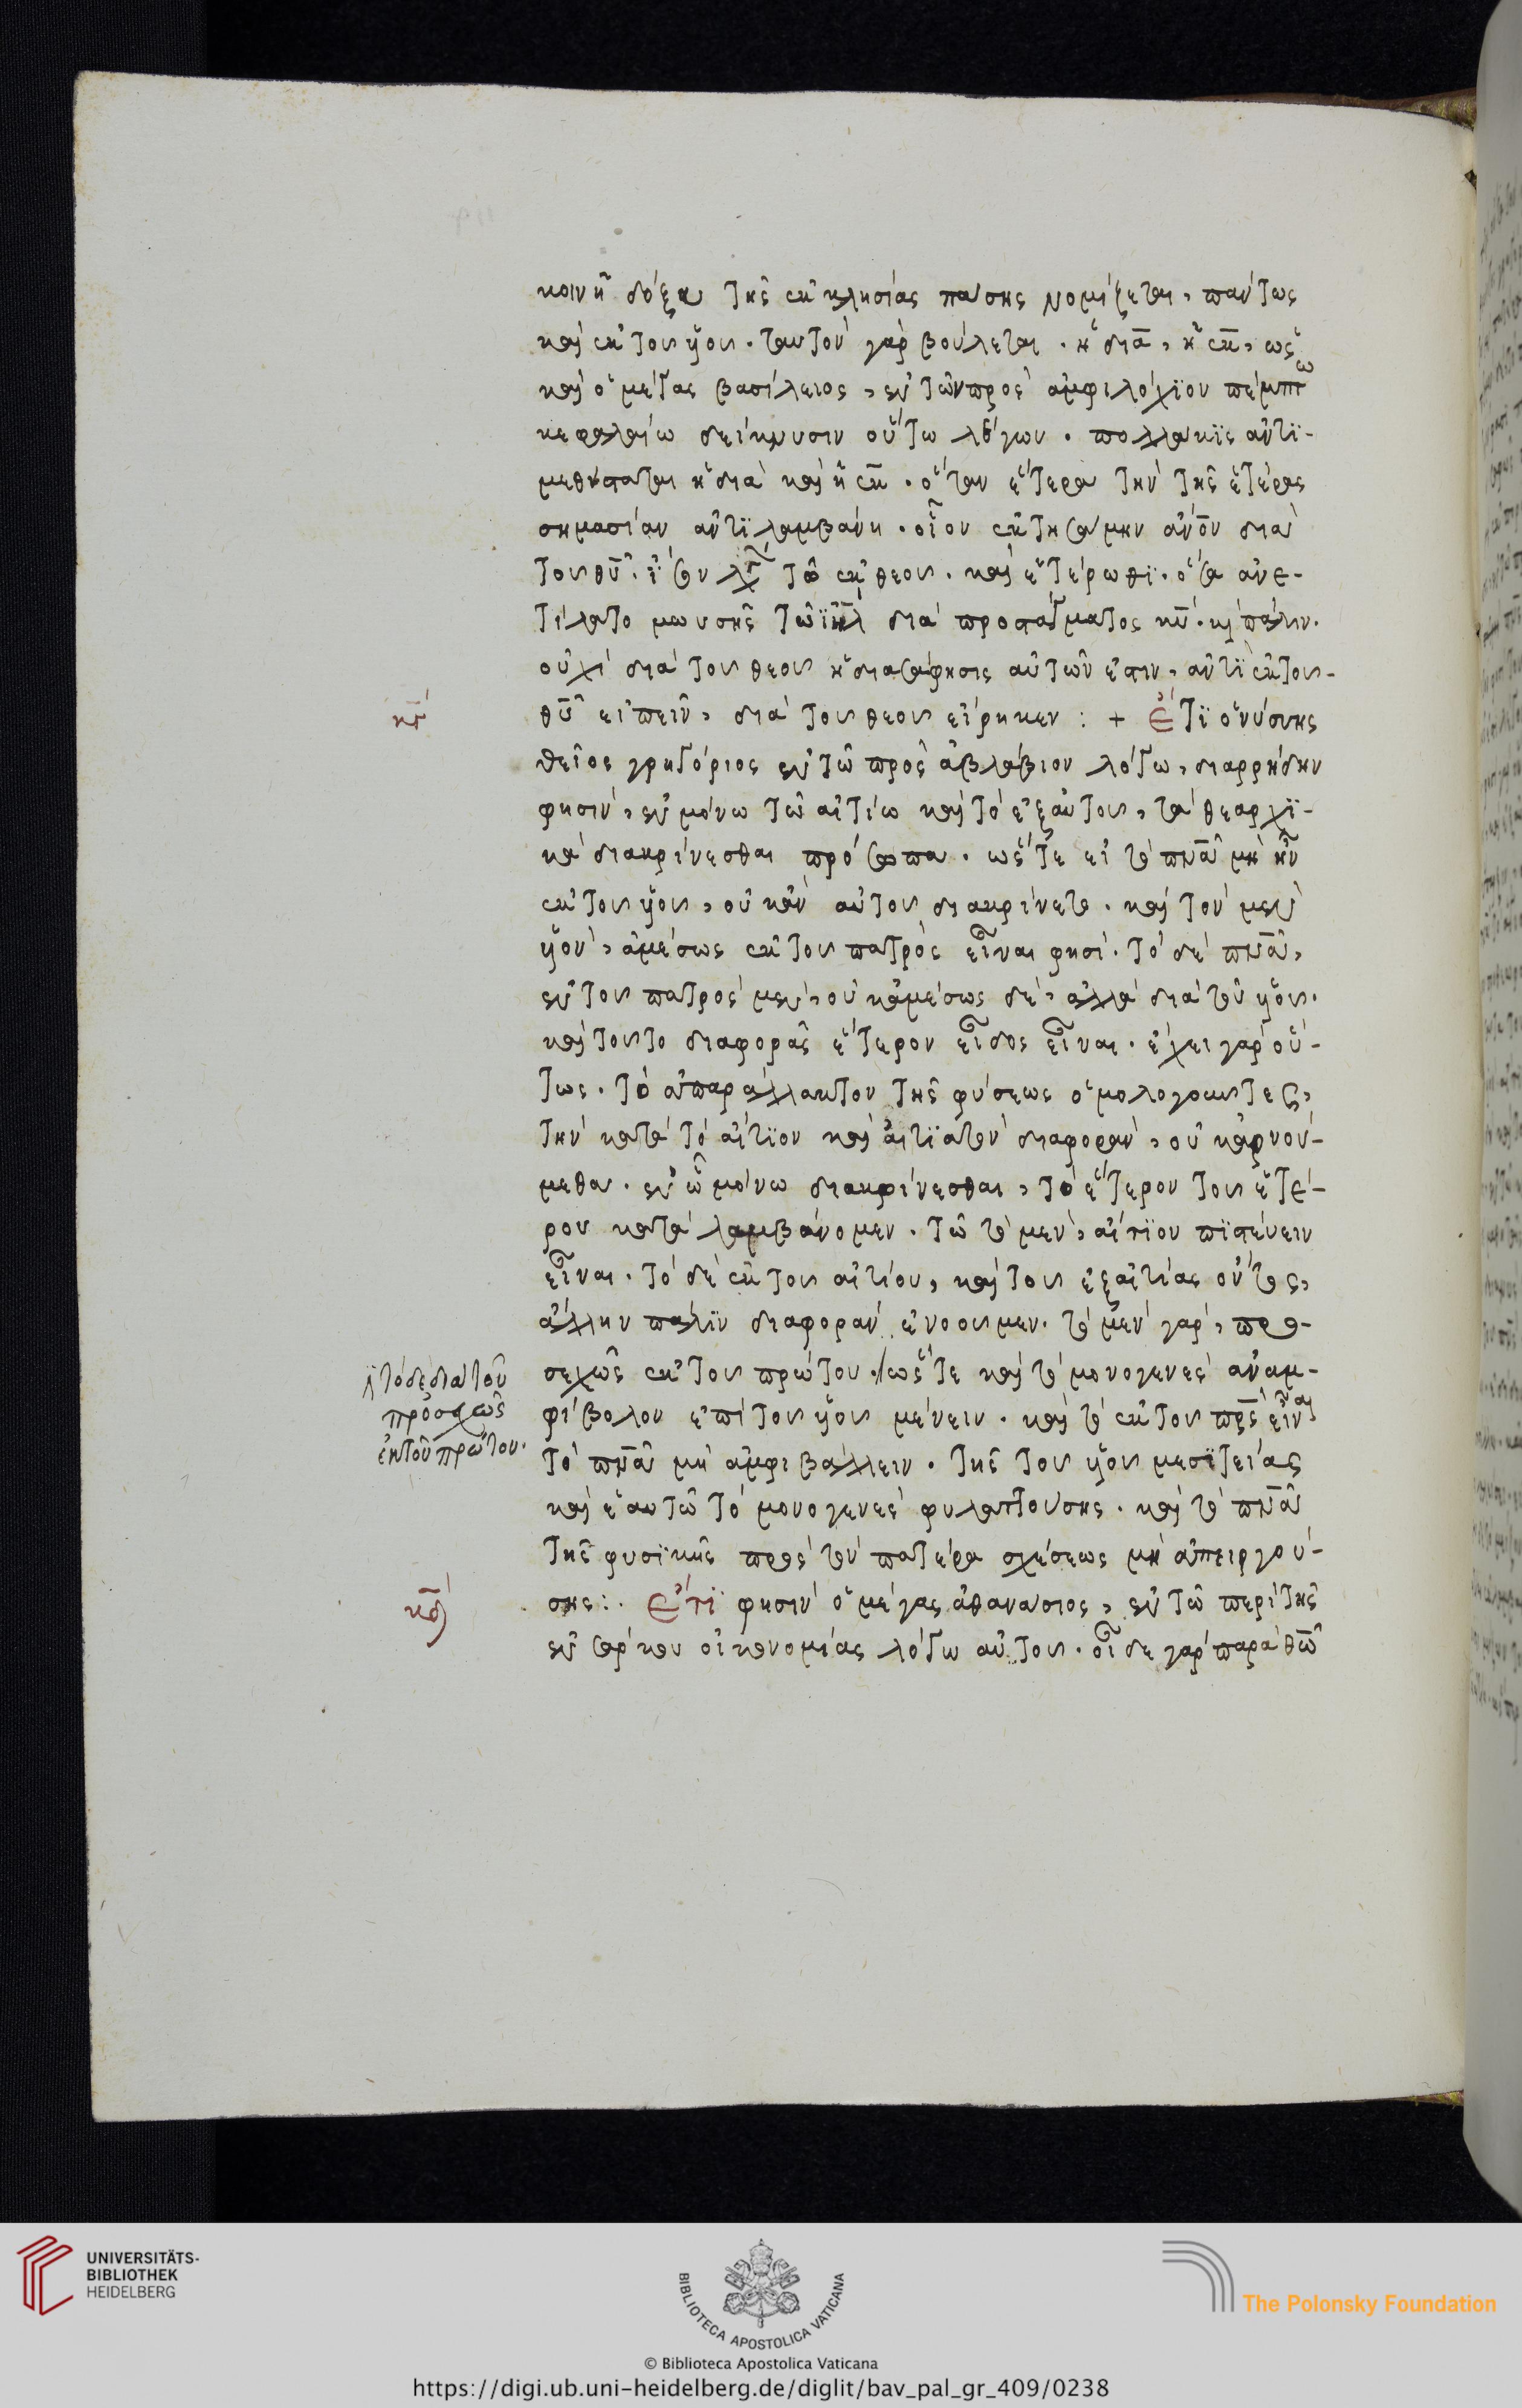 κοινὴ δόξα τῆς ἐκκλησίας πάσης νομίζεται, πάντως
καὶ ἐκ τοῦ υἱοῦ. ταυτὸν γὰρ βούλεται. ἡ διὰ, ἡ ἐκ, ὡς
καὶ ὁ μέγας βασίλειος, ἐν τῶ πρὸς ἀμφιλόχϊον πέμπτω
κεφαλαίω δείκνυσιν οὕτω λέγων. πολλάκϊς ἀντϊ-
μεθίσταται ἡ διὰ καὶ ἡ ἐκ. ὅταν ἑτέρα τὴν τῆς ἑτέρας
σημασίαν ἀντϊλαμβάνη. οἷον ἐκτησάμην ἄνον διὰ
τοῦ θυ. ἴσον τὸ ἐκ θεοῦ. καὶ ἑτέρωθϊ. ὅσα ἀνε-
τείλατο μωυσῆς τῶ ϊηλ διὰ προστάγματος κυ. κὶ πάλιν.
οὐχὶ διὰ τοῦ θεοῦ ἡ διασάφησις αὐτῶν ἐστιν, ἀντὶ ἐκ τοῦ-
θυ εἰπεῖν, διὰ τοῦ θεοῦ εἴρηκεν : + Ἔτϊ ὁ νύσσης
κγ
θεῖος γρηγόριος ἐν τῶ πρὸς ἀβλάβιον λόγω, διαρρήδην
φησὶν, ἐν μόνω τῶ αἰτίω καὶ τὸ ἐξ αὐτοῦ, τὰ θεαρχϊ-
κὰ διακρίνεσθαι πρόσωπα. ὥς τε εἰ τὸ πνα μὴ ἦν
ἐκ τοῦ υἱοῦ, οὐκ ἂν αὐτοῦ διακρίνετο. καὶ τὸν μὲν
υἱὸν, ἀμέσως ἐκ τοῦ πατρὸς εἶναι φησί. τὸ δὲ πνα,
ἐκ τοῦ πατρὸς μὲν, οὐκ ἀμέσως δὲ, ἀλλὰ διὰ τοῦ υἱοῦ.
καὶ τοῦτο διαφορᾶς ἕτερον εἶδος εἶναι. ἔχει γὰρ οὕ-
τως. τὸ ἀπαράλλακτον τῆς φύσεως ὁμολογοῦντες,
τὴν κατὰ τὸ αἴτϊον καὶ αἰτϊατὸν διαφορὰν, οὐκ ἀρνού-
μεθα. ἐν ὧ μόνω διακρίνεσθαι, τὸ ἕτερον τοῦ ἑτέ-
ρου καταλαμβάνομεν. τῶ τὸ μὲν, αἴτϊον πϊστεύειν
εἶναι. τὸ δὲ ἐκ τοῦ αἰτίου, καὶ τοῦ ἐξ αἰτίας ὄντος,
ἄλλην πάλϊν διαφορὰν ἐννοοῦμεν. τὸ μὲν γὰρ, προ-
σεχῶς ἐκ τοῦ πρώτου. ὥς τε καὶ τὸ μονογενὲς ἀναμ-
τὸ δὲ διὰ τοῦ
προσεχῶς
ἐκ τοῦ πρώτου.
φίβολον ἐπὶ τοῦ υἱοῦ μένειν. καὶ τὸ ἐκ τοῦ πρς εἶναι
τὸ πνα μὴ ἀμφιβάλλειν. τῆς τοῦ υἱοῦ μεσϊτείας
καὶ ἑαυτῶ τὸ μονογενὲς φυλαττούσης. καὶ τὸ πνα
τῆς φυσϊκῆς πρὸς τὸν πατέρα σχέσεως μὴ ἀπειργού-
σης :. Ἔτϊ φησὶν ὁ μέγας ἀθανάσιος, ἐν τῶ περὶ τῆς
κδ
ἐν σάρκου οἰκονομίας λόγω αὐτοῦ. οἶδε γὰρ παρὰ θω
UNIVERSITÄTS-
BIBLIOTHEK
HEIDELBERG
BIBLIOTECA APOSTOLICA VATICANA
The Polonsky Foundation
© Biblioteca Apostolica Vaticana
https://digi.ub.uni-heidelberg.de/diglit/bav_pal_gr_409/0238